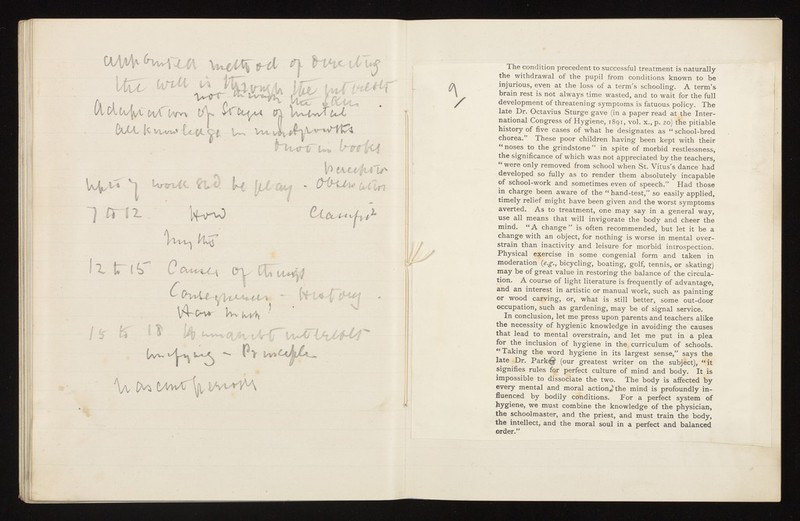 appointed method of directing
the will is through the interests
not through the
Adaptation of Stages of mental
all knowledge in mind growths
& not in books
up to 7 work sd be play - Observation
7 to 12 How Classifn
Myths
12 to 15 Causes of things
Consequences - History.
How much?
15 to 18 interests
unifying - Principle
nascent periods
9
The condition precedent to successful treatment is naturally
the withdrawal of the pupil from conditions known to be
injurious, even at the loss of a term's schooling. A term's
brain rest is not always time wasted, and to wait for the full
development of threatening symptoms is fatuous policy. The
late Dr. Octavius Sturge gave (in a paper read at the Inter-
national Congress of Hygiene, 1891, vol. x., p. 20) the pitiable
history of five cases of what he designates as "school-bred
chorea." These poor children having been kept with their
"noses to the grindstone" in spite of morbid restlessness,
the significance of which was not appreciated by the teachers,
"were only removed from school when St. Vitus's dance had
developed so fully as to render them absolutely incapable
of school-work and sometimes even of speech." Had those
in charge been aware of the "hand-test," so easily applied,
timely relief might have been given and the worst symptoms
averted. As to treatment, one may say in a general way,
use all means that will invigorate the body and cheer the
mind. "A change" is often recommended, but let it be a
change with an object, for nothing is worse in mental over-
strain than inactivity and leisure for morbid introspection.
Physical exercise in some congenial form and taken in
moderation (e.g., bicycling, boating, golf, tennis, or skating)
may be of great value in restoring the balance of the circula-
tion. A course of light literature is frequently of advantage,
and an interest in artistic or manual work, such as painting
or wood carving, or, what is still better, some out-door
occupation, such as gardening, may be of signal service.
In conclusion, let me press upon parents and teachers alike
the necessity of hygienic knowledge in avoiding the causes
that lead to mental overstrain, and let me put in a plea
for the inclusion of hygiene in the curriculum of schools.
"Taking the word hygiene in its largest sense," says the
late Dr. Parkes (our greatest writer on the subject), "it
signifies rules for perfect culture of mind and body. It is
impossible to dissociate the two. The body is affected by
every mental and moral action, the mind is profoundly in-
fluenced by bodily conditions. For a perfect system of
hygiene, we must combine the knowledge of the physician,
the schoolmaster, and the priest, and must train the body,
the intellect, and the moral soul in a perfect and balanced
order."